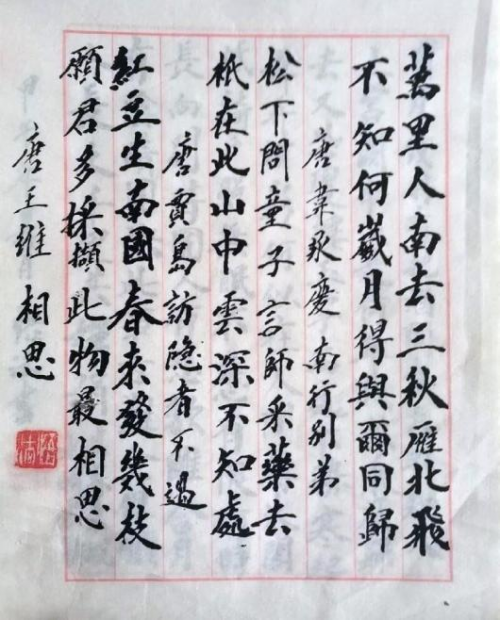 萬里人南去三秋雁北飛
不知何歲月得與爾同歸
唐韋承慶南行別弟
松下問童子言師采藥去
祇在此山中雲深不知處
唐賈島訪隐者不遇
紅豆生南國春來發幾枝
願君多採擷此物最相思
唐王維相思